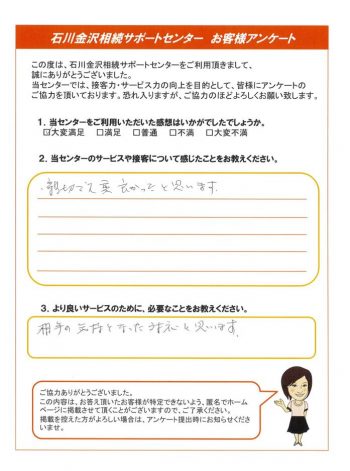 石川金沢相続サポートセンター　お客様アンケート
この度は、石川金沢相続サポートセンターをご利用頂きまして、
誠にありがとうございました。
当センターでは、接客力・サービス力の向上を目的として、皆様にアンケートの
ご協力を頂いております。恐れ入りますが、ご協力のほどよろしくお願い致します。
１．当センターをご利用いただいた感想はいかがでしたでしょうか。
☑大変満足　□満足　□普通　□不満　□大変不満
２．当センターのサービスや接客について感じたことをお教えください。
・親切で大変良かったと思います。
３．より良いサービスのために、必要なことをお教えください。
相手の気持となった と思います。
ご協力ありがとうございました。
この内容は、お答え頂いたお客様が特定できないよう、匿名でホーム
ページに掲載させて頂くことがございますので、ご了承ください。
掲載を控えた方がよろしい場合は、アンケート提出時にお知らせくださ
いませ。